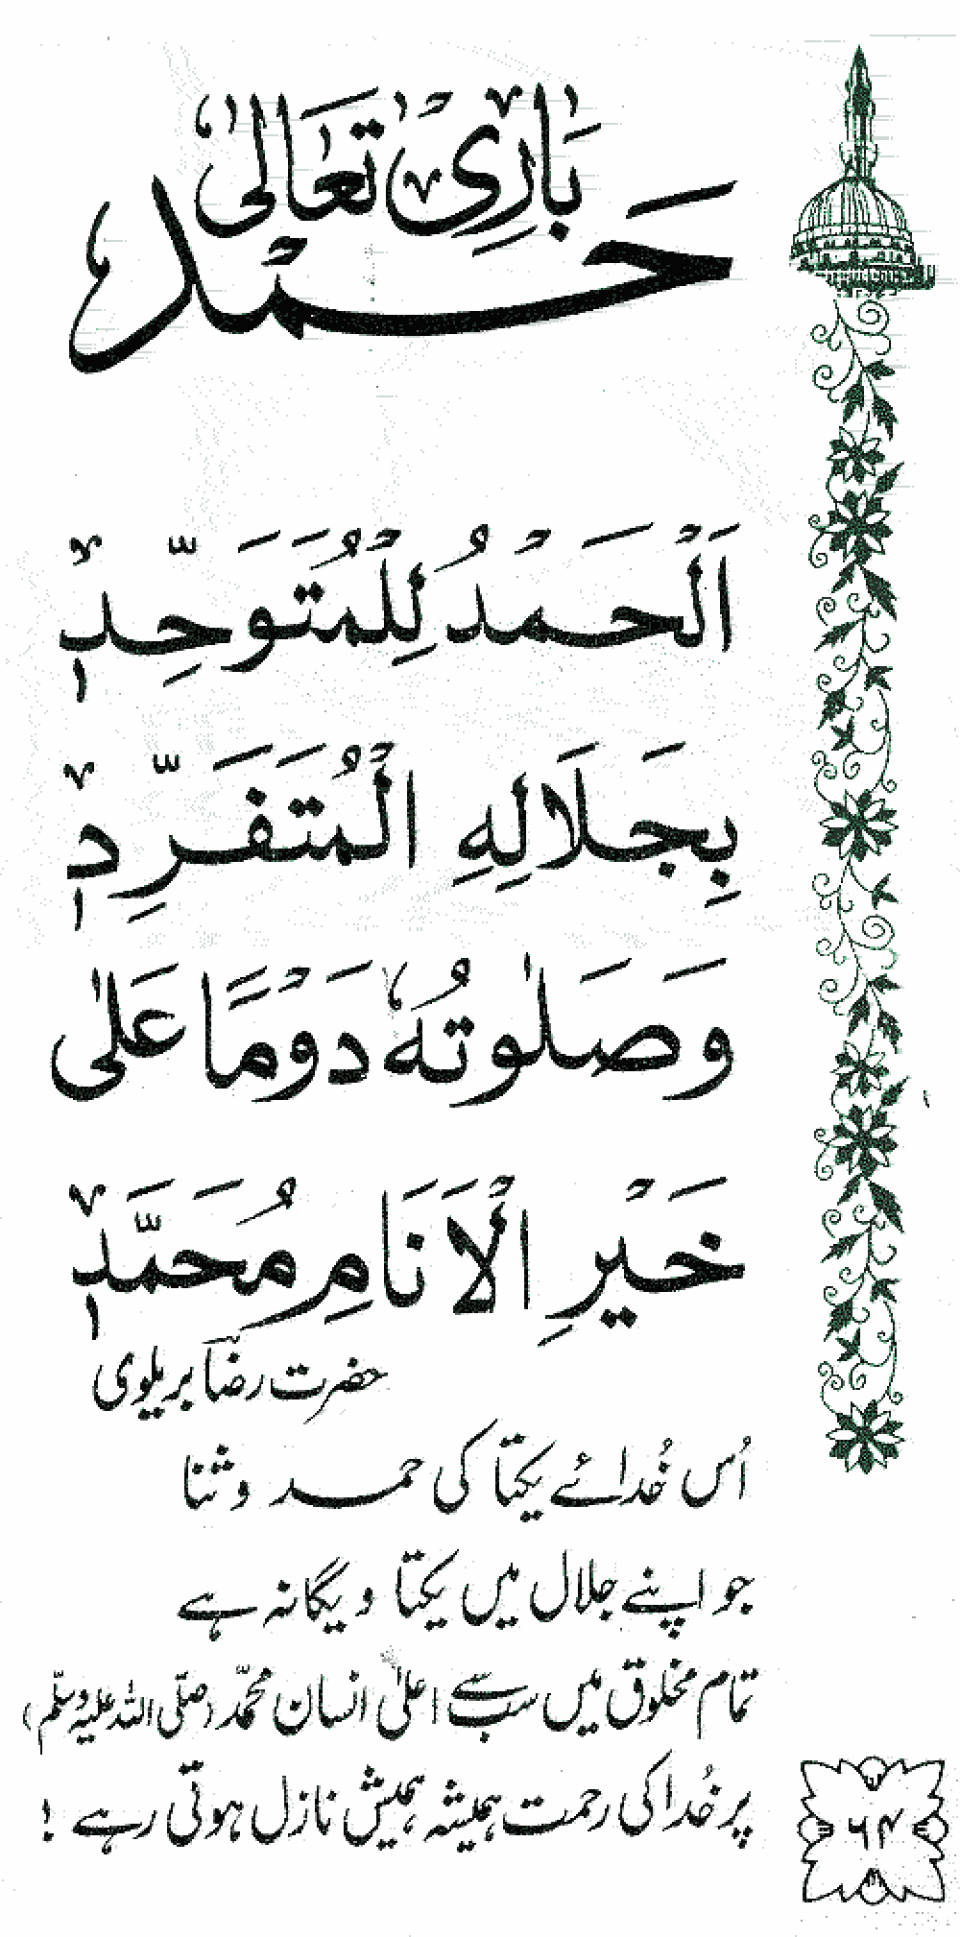 حمد باری تعالی
اَلْحَمْدُ لِلْمُتَوَحِّدٖ
بِجَلَالِهِ الْمُتَفَرِّدٖ
وَصَلٰوتُهٗ دَوْمًا عَلٰی
خَیْرِ الْاَنَامِ مُحَمَّدٖ
حضرت رضاؔ بریلوی
اُس خُدائے یکتا کی حمد و ثنا
جو اپنے جلال میں یکتا و یگانہ ہے
تمام مخلوق میں سب سے اعلیٰ انسان محمّد (صلّی اللہ علیہ وسلّم)
پر خُدا کی رحمت ہمیشہ ہمیش نازل ہوتی رہے !
۶۴